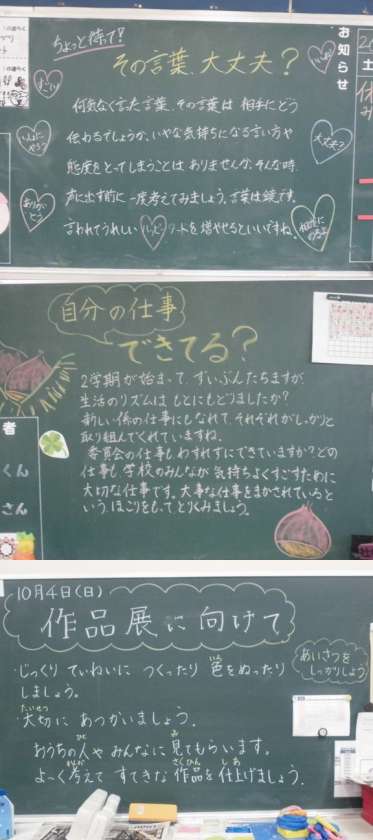 ちょっと待って!
その言葉、大丈夫?
お知らせ
何気なく言った言葉、その言葉は 相手にどう
伝わるでしょうか。いやな気持ちになる言い方や
態度をとってしまうことは ありませんか。そんな時、
声に出す前に 一度考えてみましょう。言葉は鏡です。
言われてうれしい ハッピーハートを増やせるといいですね。
すごい
いっしょに
やろう
ありがとう
大丈夫?
自分の仕事
できてる?
2学期が始まって、ずいぶんたちますが、
生活のリズムは もとにもどりましたか?
新しい係の仕事にもなれて、それぞれがしっかりと
取り組んでくれていますね。
委員会の仕事も わすれずにできていますか?どの
仕事も、学校のみんなが 気持ちよくすごすために
大切な仕事です。大事な仕事をまかされていると
いう、ほこりをもって とりくみましょう。
者
くん
さん
10月4日(日)
作品展に向けて
あいさつを
しっかりしよう
・じっくり ていねいに つくったり 色をぬったり
しましょう。
・大切に あつかいましょう。
おうちの人や みんなに 見てもらいます。
よ〜く考えて すてきな 作品を 仕上げましょう。